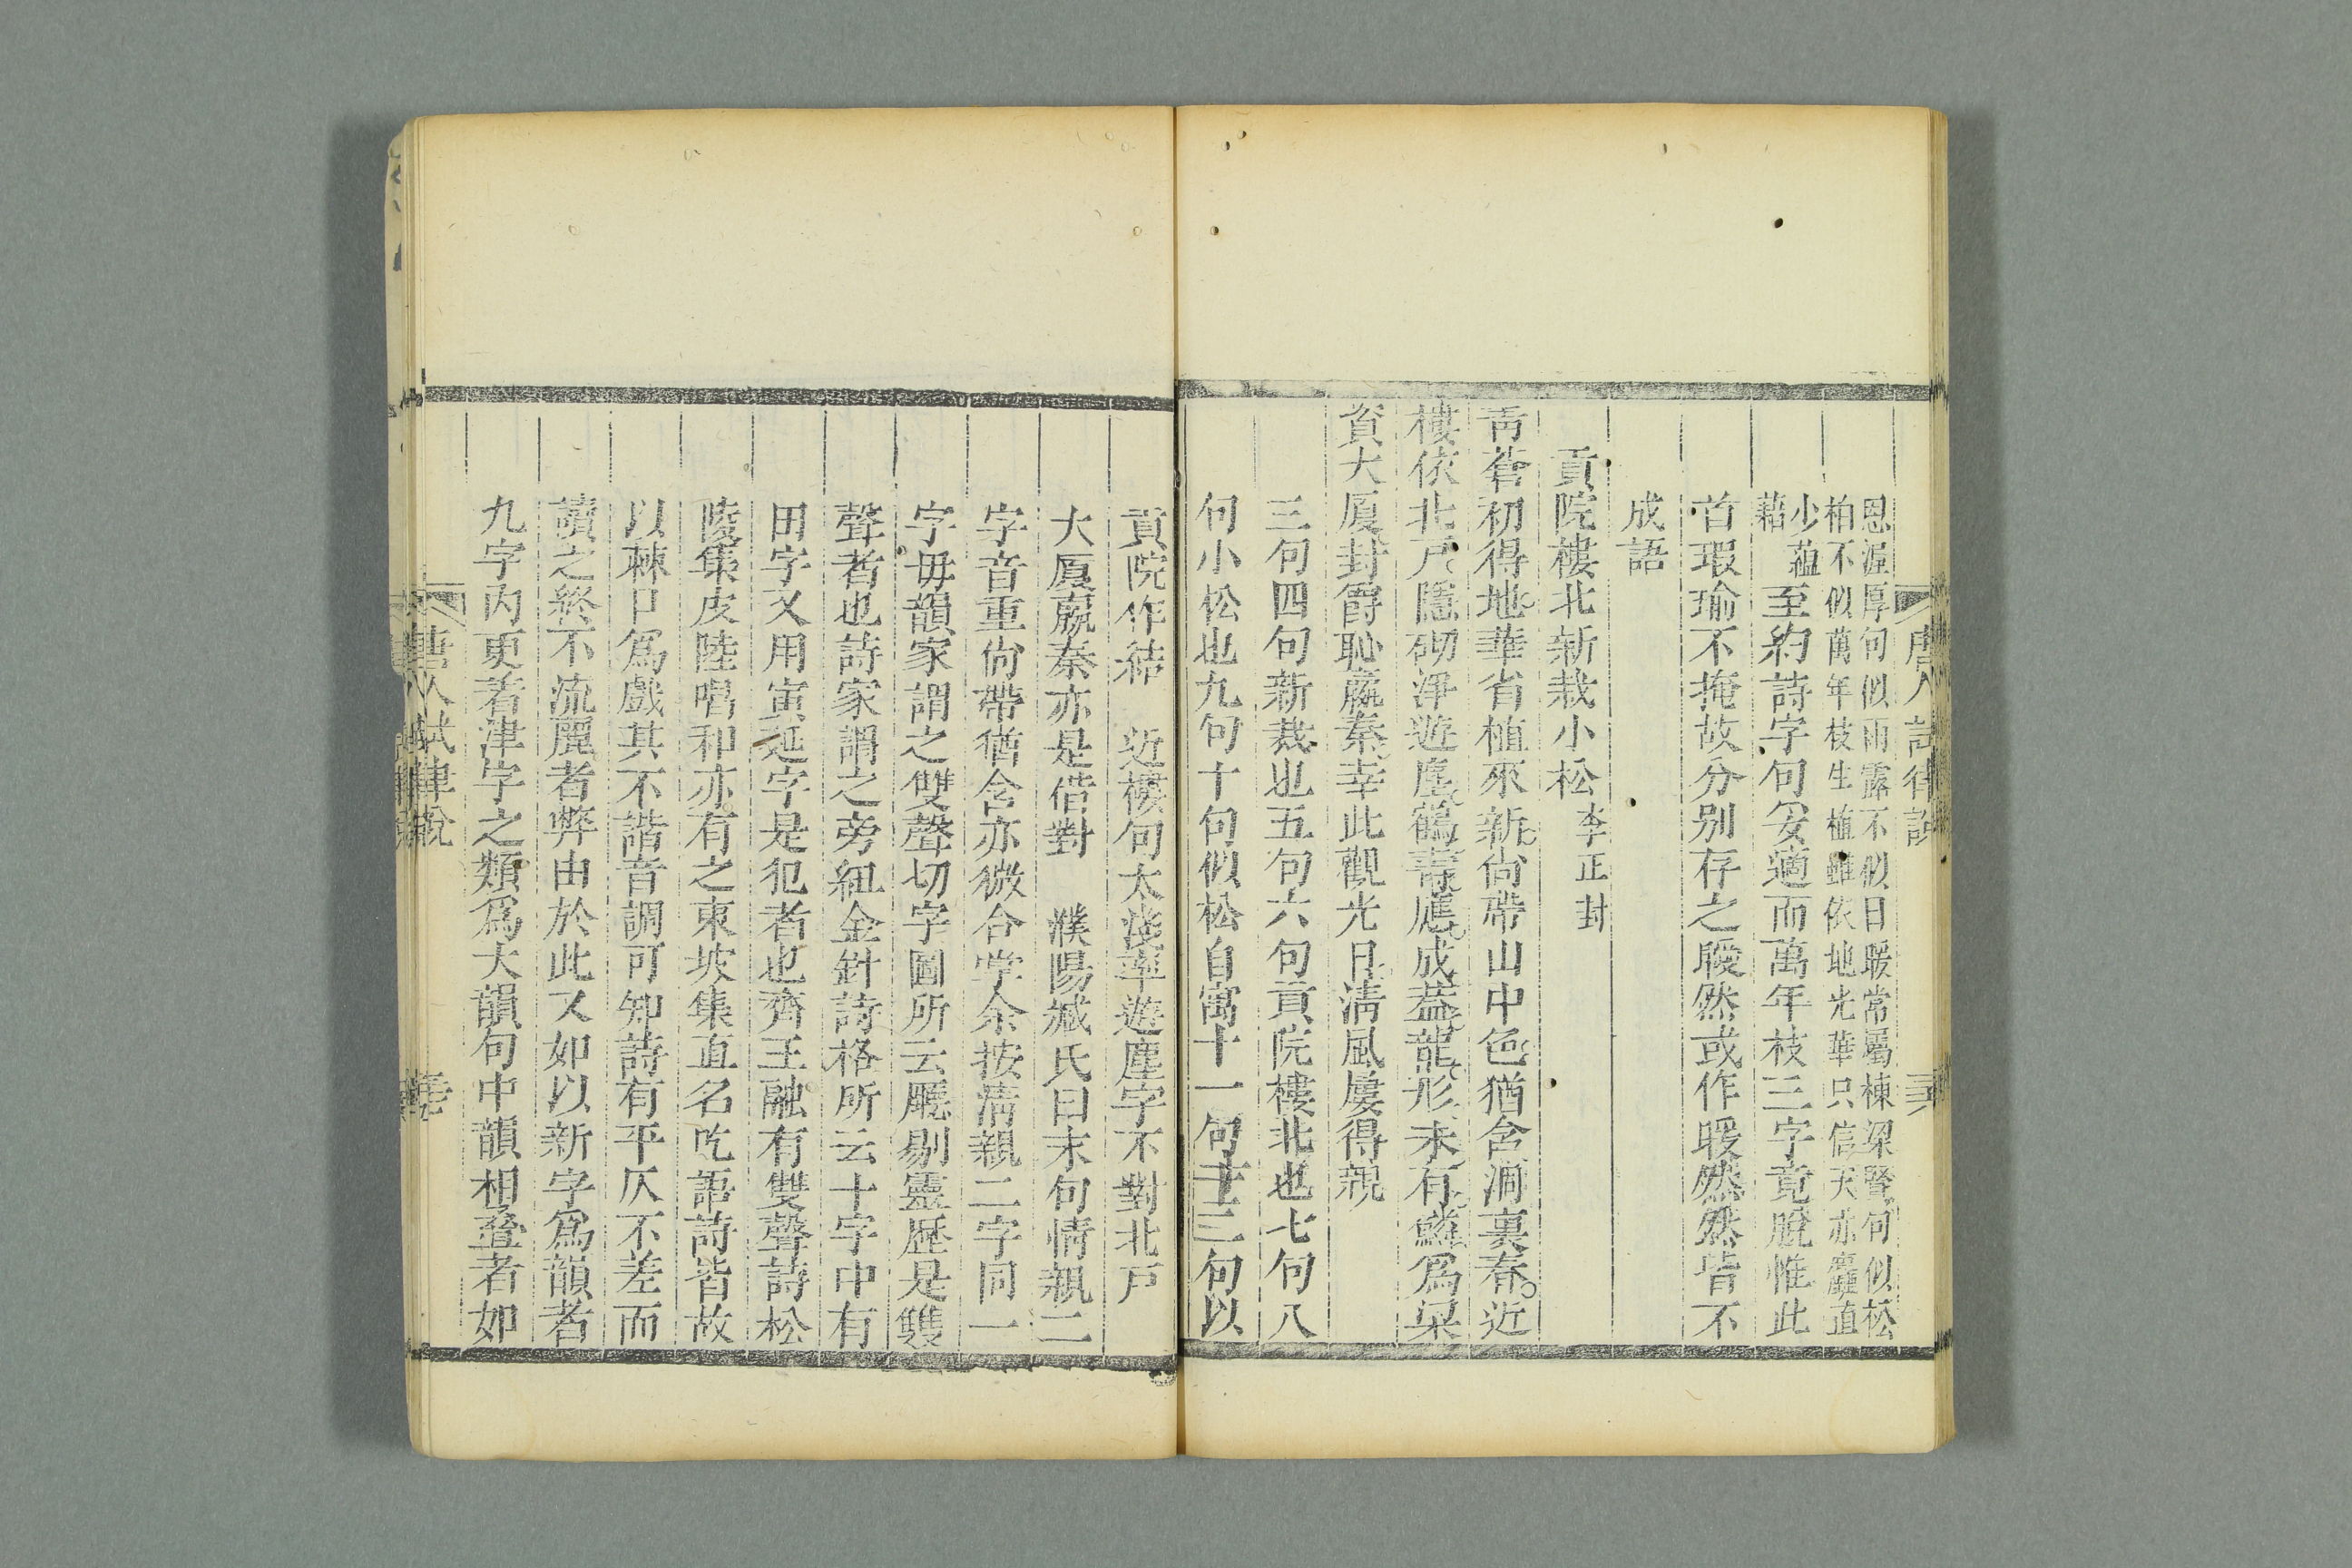 恩渥厚句似雨露不似日暖常屬棟梁賢句似松
柏不似萬年枝生植雖依地光華只信天亦麤直
少蘊
藉
至約詩字句妥適而萬年枝三字竟脫惟此
首瑕瑜不掩故分别存之曖然或作暖然然皆不
成語
貢院樓北新栽小松 李正封
靑蒼初得地華省植來新尙帶山中色猶含洞裏春近
樓依北戸隱砌淨遊塵鶴壽應成葢龍形未有鱗爲梁
資大厦封爵恥嬴秦幸此觀光日淸風屢得親
三句四句新栽也五句六句貢院樓北也七句八
句小松也九句十句似松自寓十一句十二句以
貢院作結 近樓句太淺率遊塵字不對北戸
大厦嬴秦亦是借對 濮陽臧氏曰末句情親二
字音重尙帶猶含亦微合掌余按淸親二字同一
字毋韻家謂之雙聲切字圖所云屬剔靈歷是雙
聲者也詩家謂之旁紐金針詩格所云十字中有
田字又用寅延字是犯者也齊王融有雙聲詩松
陵集皮陸唱和亦有之東坡集直名吃語詩皆故
以棘口爲戲其不諧音調可知詩有平仄不差而
讀之終不流麗者弊由於此又如以新字爲韻者
九字内更着津字之類爲大韻句中韻相叠者如
唐人試律說
唐人試律說